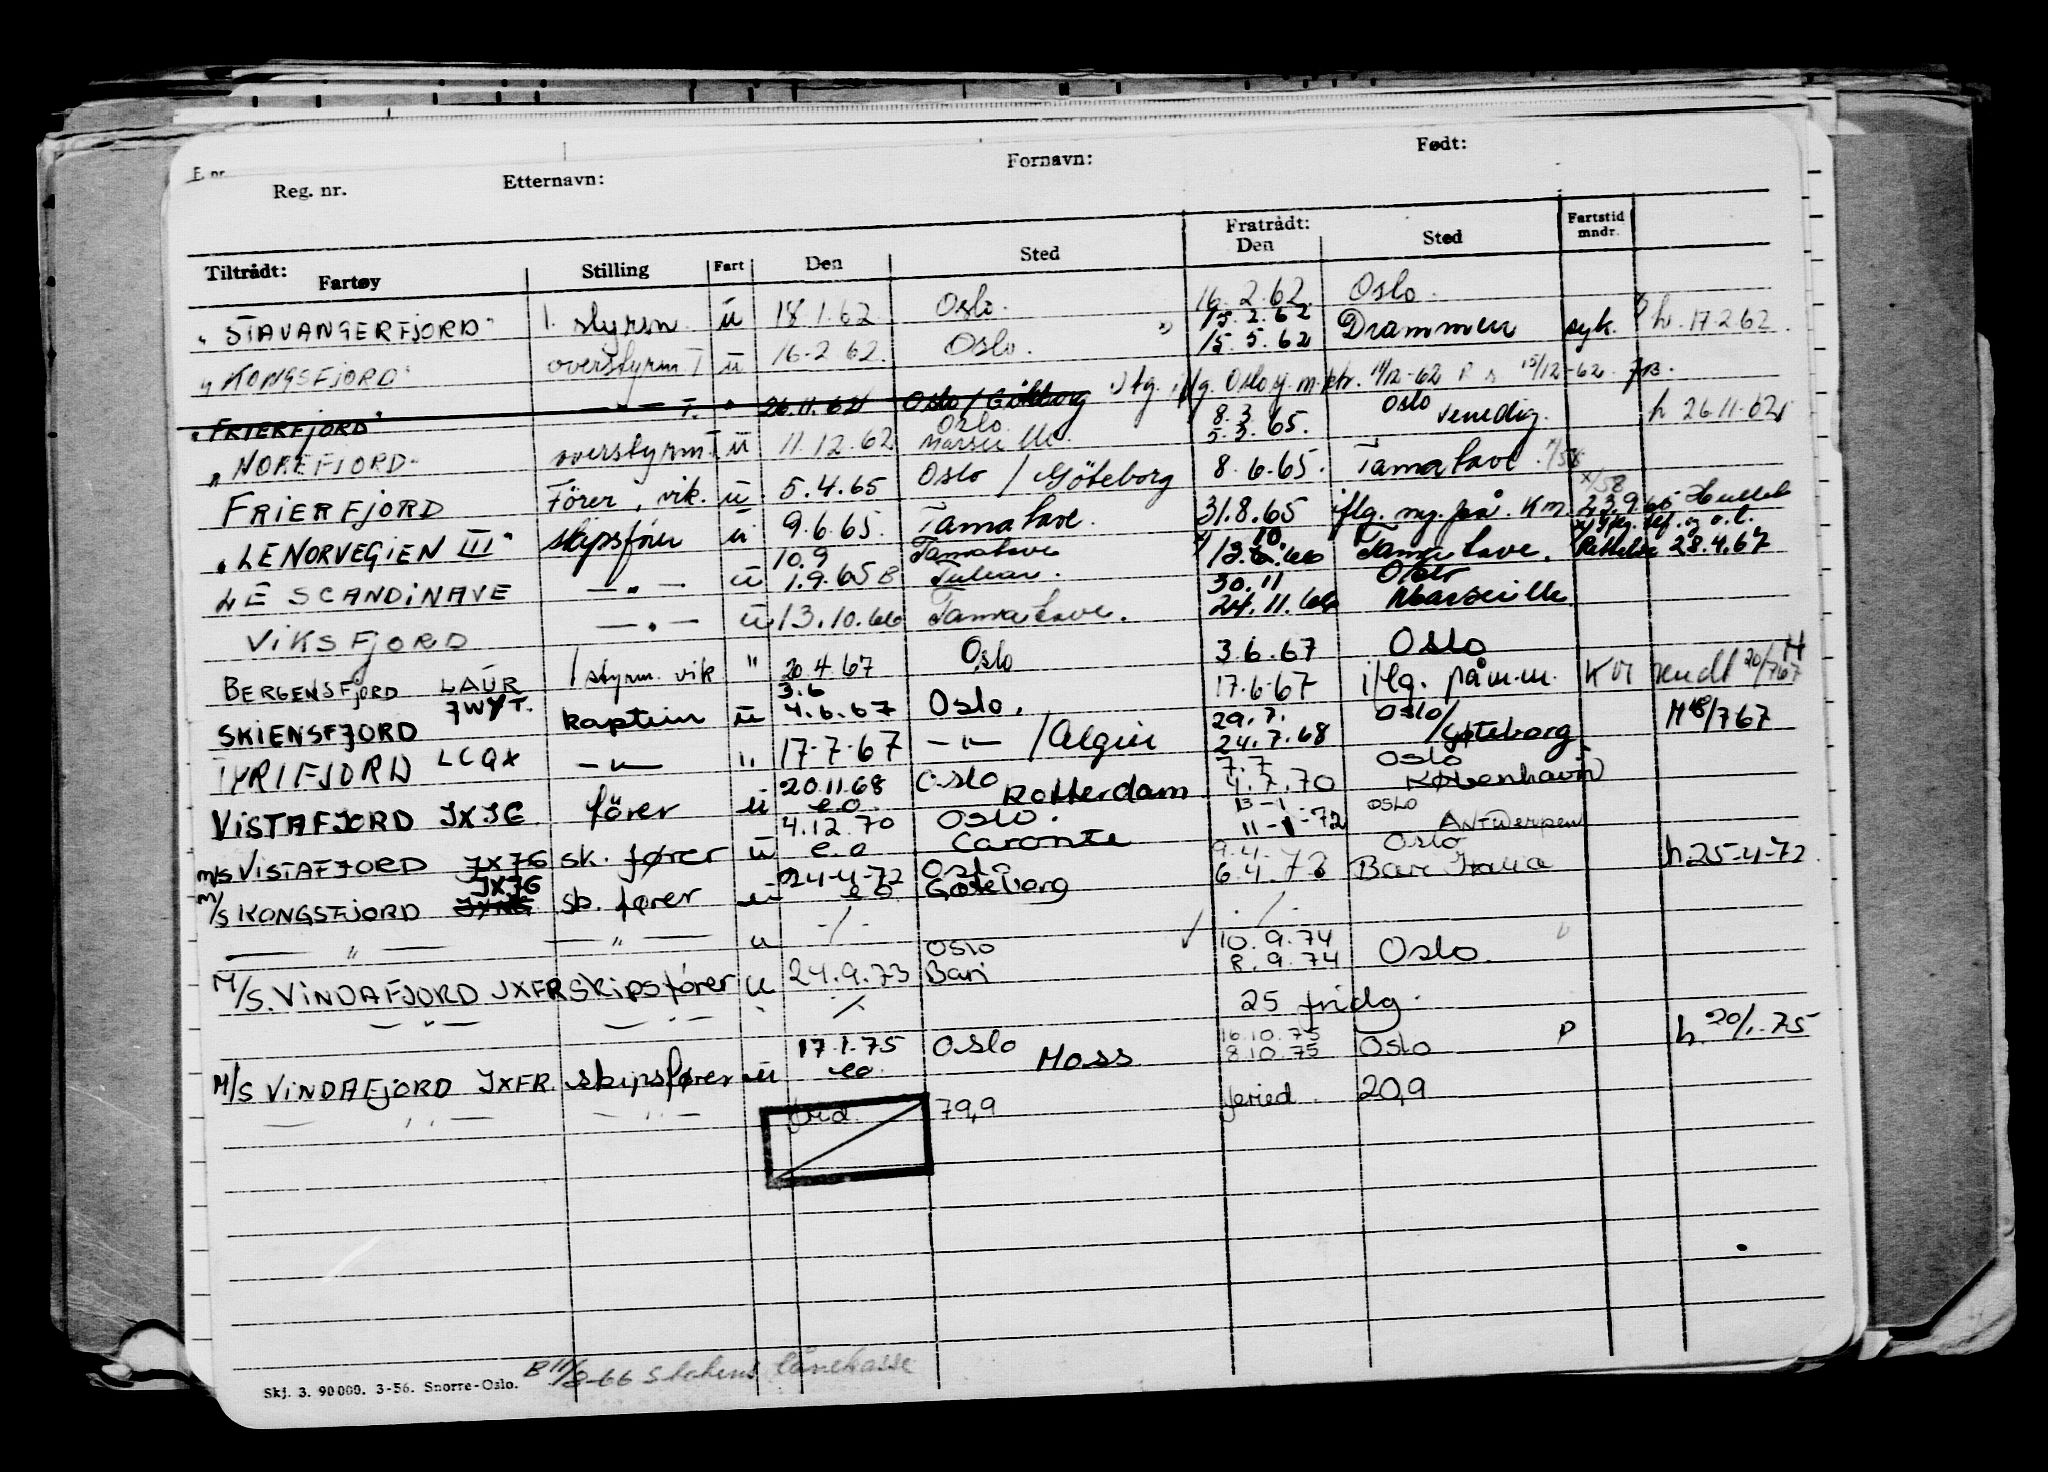 Reg. nr. Etternavn: Fornavn: Født:
Tiltrådt: Fratrådt:
Fartøy Stilling Fart Den Sted Den Sted Fartstid mndr.
"STAVANGERFJORD" 1. styrm. ü 18.1.62 Oslo. 16.2.62 Oslo.
15.2.62
"KONGSFJORD" overstyrm. I ü 16.2.62. Oslo. 15.5.62 Drammen syk. h. 17.2.62.
"FRIERFJORD" — " — I. " 26.11.62 Oslo / Göteborg Oslo 15/12-62
Oslo 8.3 Oslo
"NOREFJORD" overstyrm. I ü 11.12.62 Marseille. 5.3.65. Venedig. h 26.11.62
FRIERFJORD Förer, vik. ü 5.4.65 Oslo / Göteborg 8.6.65. Tamatave.
"LE NORVEGIEN III" skipsfører ü 9.6.65. Tamatave. 31.8.65 iflg. 23.9.65
10.9 Tamatave 10
LE SCANDINAVE — " — ü 1.9.65 B Tulear. Tamatave. Rettelse 28.4.67
30.11 Oslo
VIKSFJORD — " — ü 13.10.66 Tamatave. 24.11.66 Marseille
BERGENSFJORD LAUR 1 styrm. vik " 20.4.67 Oslo 3.6.67 Oslo
3.6
SKIENSFJORD JWYT. kaptein ü 4.6.67 Oslo. 17.6.67 iflg. påm.m. 20/7 67
29.7. Oslo/
TYRIFJORD LCQX — " — " 17.7.67 — " — / Algier 24.7.68 Gøteborg M 18/7 67
20.11.68 Oslo 7.7 Oslo
VISTAFJORD JXJG fører ü e.o. Rotterdam 4.7.70 København
4.12.70 Oslo. 13-1 OSLO
M/S VISTAFJORD JXJG sk. fører ü e.o Caronte 11-1-72 ANTWerpen
24-4-72 Oslo 9.4. Oslo
M/S KONGSFJORD JXJG sk. fører ü e o Gøteborg 6.4.73 Bari Italia h 25-4-72.
— " — — " — u -/- -/-
OSLO 10.9.74
M/S. VINDAFJORD JXFR Skipsfører u 24.9.73 Bari 8.9.74 Oslo.
— " — — " — 25 fridg.
17.1.75 Oslo 16.10.75
M/S VINDAFJORD JXFR. skipsfører ü eo. Moss 8.10.75 Oslo P h. 20/1.75
— " — — " — frid. 79,9 feried. 20,9
B 11/2-66 Statens lånekasse
Skj. 3. 90 000. 3-56. Snorre-Oslo.